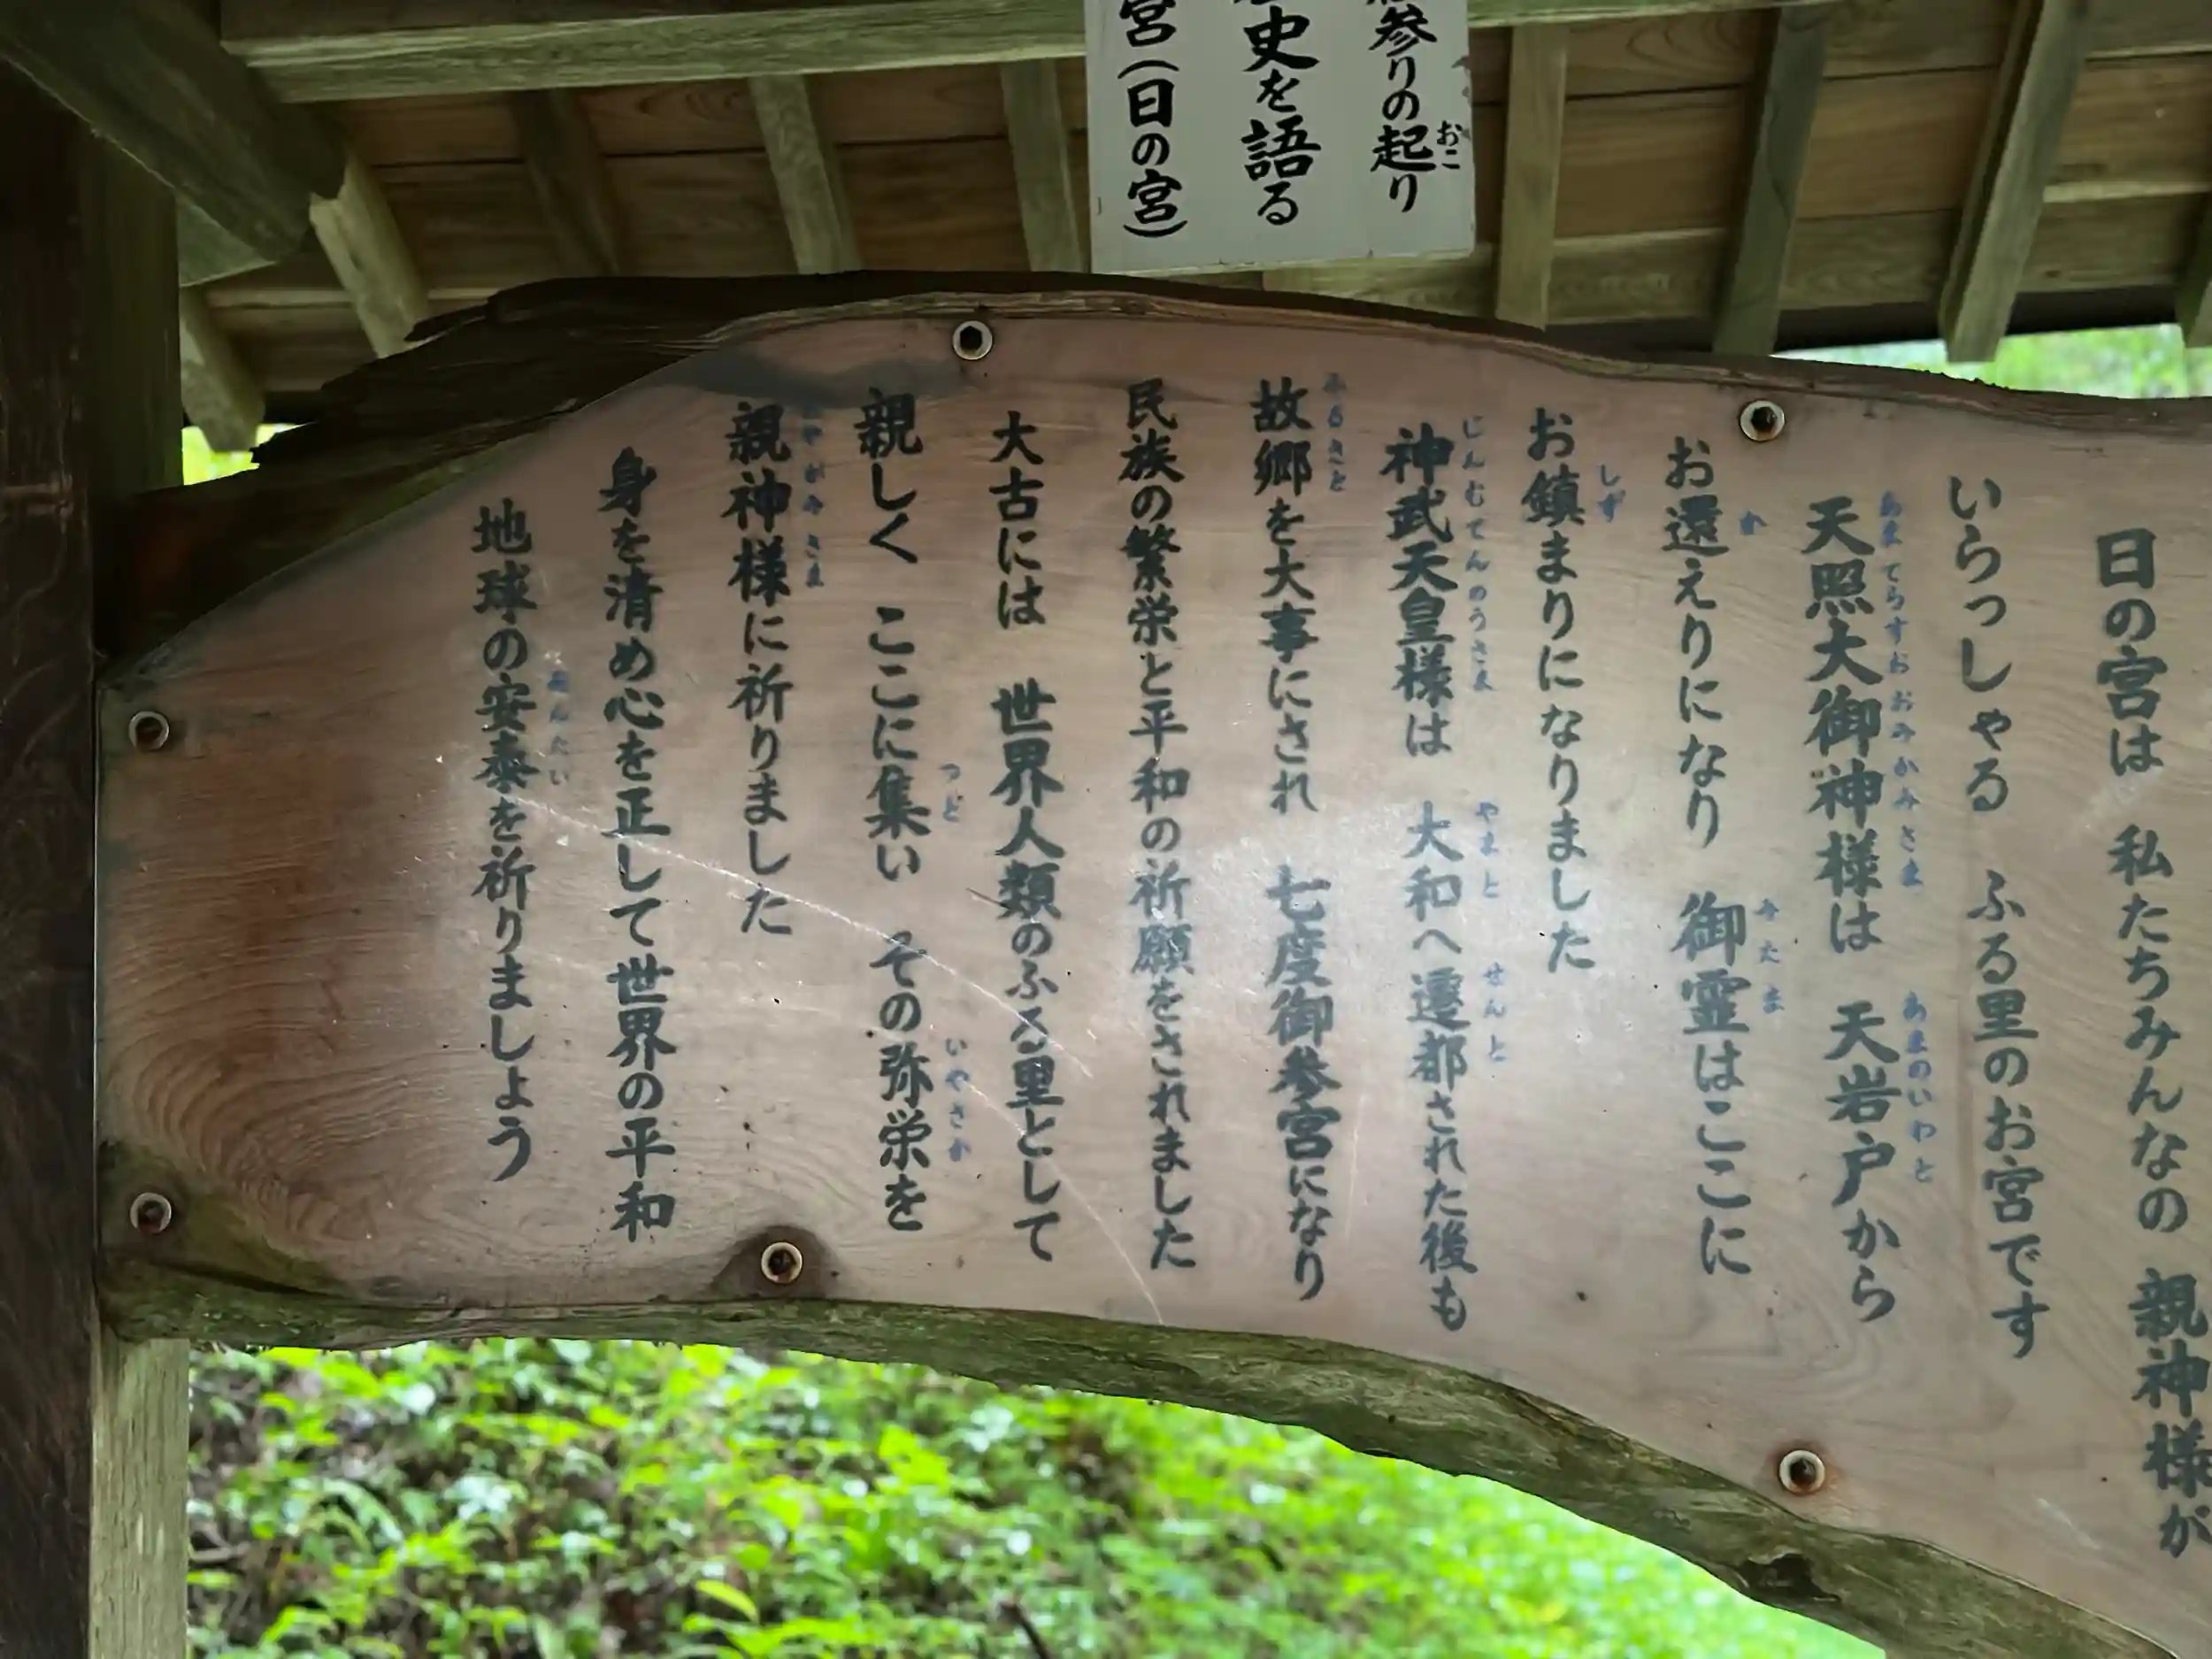 参りの起り
史を語る
宮(日の宮)
日の宮は 私たちみんなの 親神様が
いらっしゃる ふる里のお宮です
天照大御神様は 天岩戸から
お還えりになり 御霊はここに
お鎮まりになりました
神武天皇様は 大和へ遷都された後も
故郷を大事にされ 七度御参宮になり
民族の繁栄と平和の祈願をされました
大古には 世界人類のふる里として
親しく ここに集い その弥栄を
親神様に祈りました
身を清め心を正して世界の平和
地球の安泰を祈りましょう